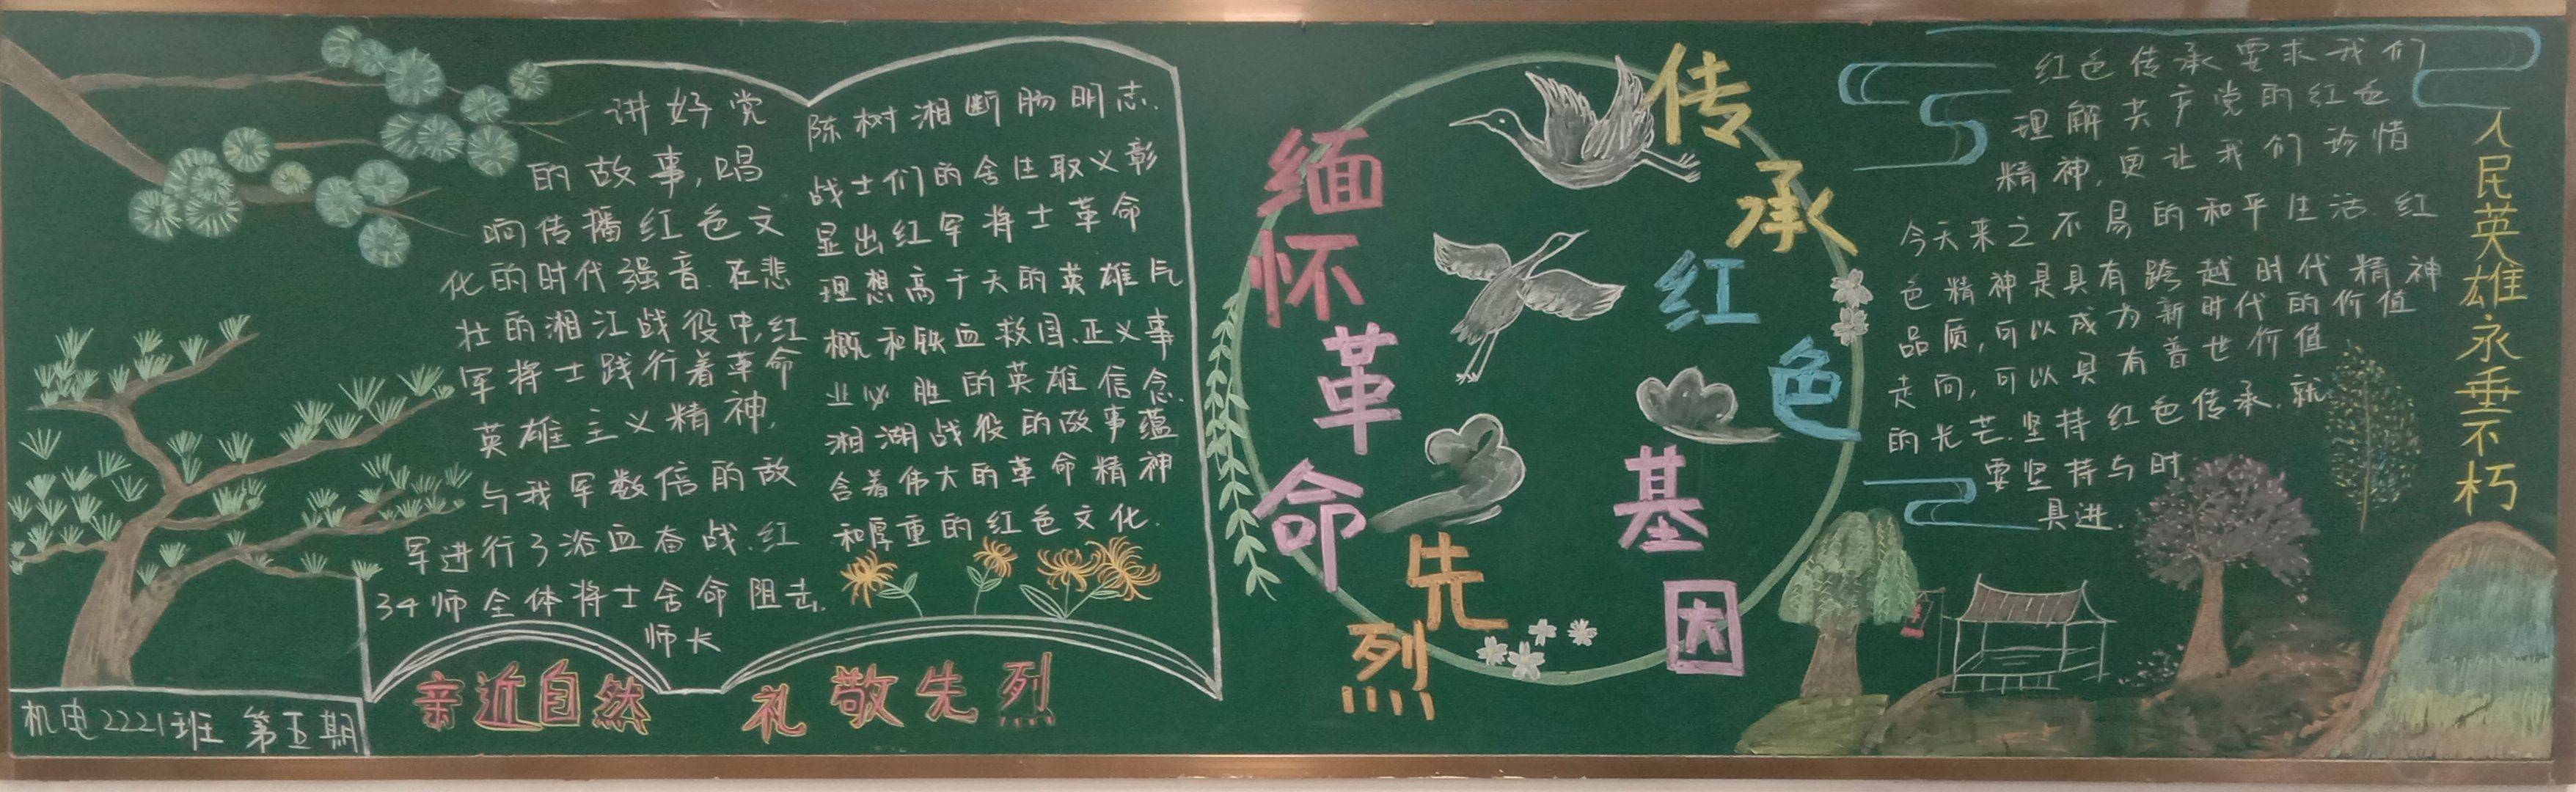 讲好党
的故事,唱
响传播红色文
化的时代强音.在悲
壮的湘江战役中,红
军将士践行着革命
英雄主义精神,
与我军数倍的敌
军进行了浴血奋战.红
34师全体将士舍命阻击.
师长
陈树湘断肠明志.
战士们的舍生取义彰
显出红军将士革命
理想高于天的英雄气
概和铁血救国、正义事
业必胜的英雄信念.
湘湖战役的故事蕴
含着伟大的革命精神
和厚重的红色文化.
亲近自然 礼敬先烈
机电2221班 第五期
缅怀革命先烈
传承红色基因
红色传承要求我们
理解共产党的红色
精神,更让我们珍惜
今天来之不易的和平生活.红
色精神是具有跨越时代精神
品质,可以成为新时代的价值
走向,可以具有普世价值
的光芒.坚持红色传承.就
要坚持与时
具进.
人民英雄永垂不朽